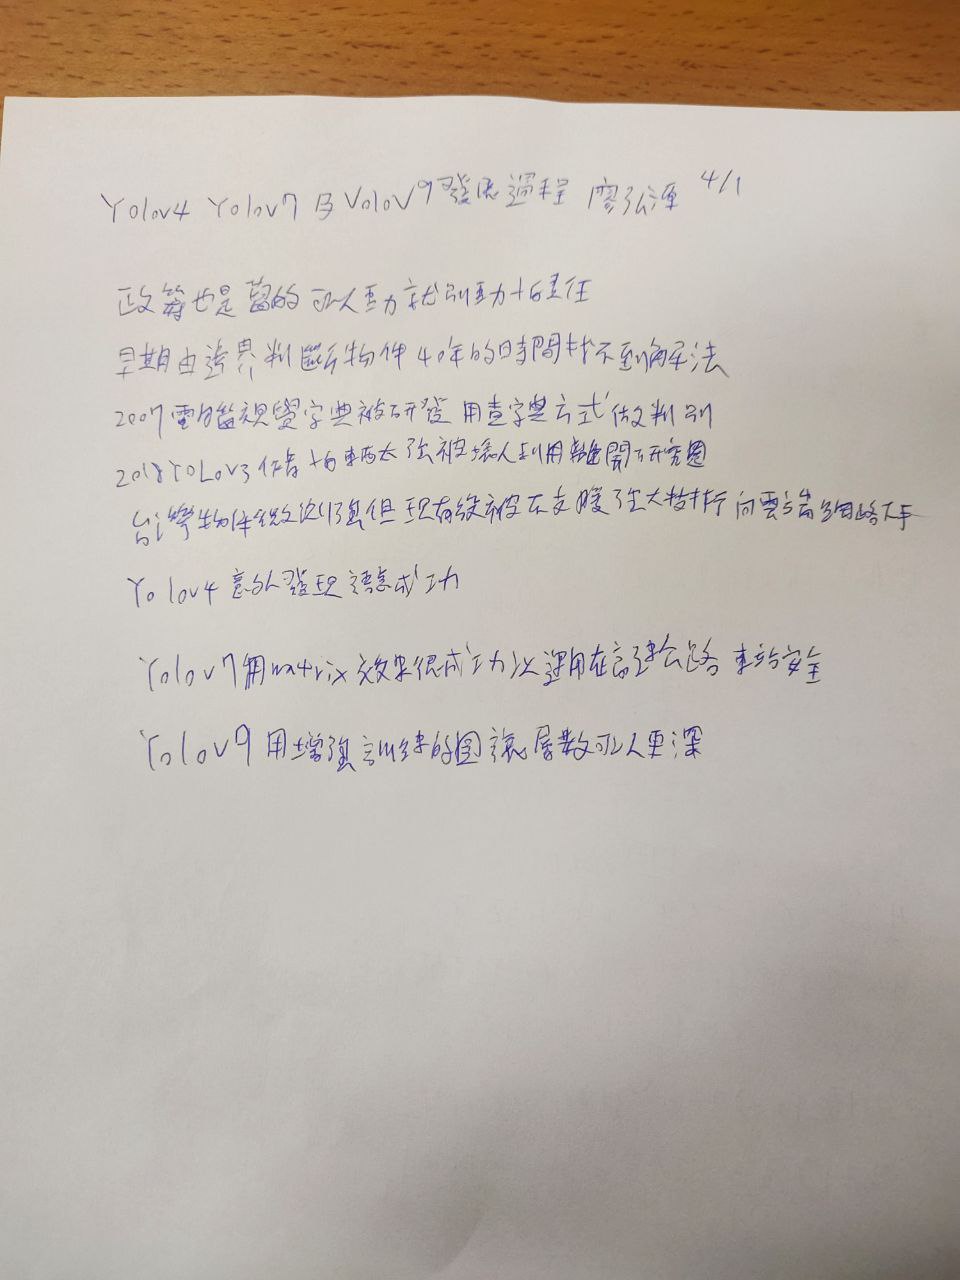 Yolov4 Yolov7 及 Yolov9發展過程 廖弘源 4/1
政策也是蕾的 可以動就別動 怕責任
早期由邊界判斷物件 40年的時間找不到解法
2007電腦視覺字典被研發 用查字典方式做判別
2018 YOLOv3作者怕東西太強被壞人利用離開研究圈
台灣物体很強但現有 被不支 大 向雲端網路
Yolov4 意外發現 成功
Yolov7用matrix效果很成功 以運用在高速公路 車站安全
Yolov9 用增強訓練的圖讓層數可以更深